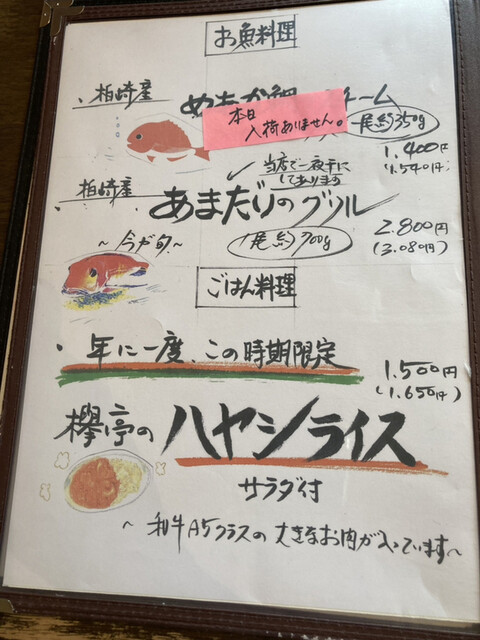 お魚料理
・柏崎産
本日
入荷ありません。
ーム
一尾約350g
1.400円
(1.540円)
当店で一夜干に
してあります
・柏崎産
あまだいのグリル
～今が旬～
一尾約700g
2.800円
(3.080円)
ごはん料理
・年に一度、この時期限定
1.500円
(1.650円)
欅亭の
ハヤシライス
サラダ付
～和牛A5クラスの大きなお肉が入っています～